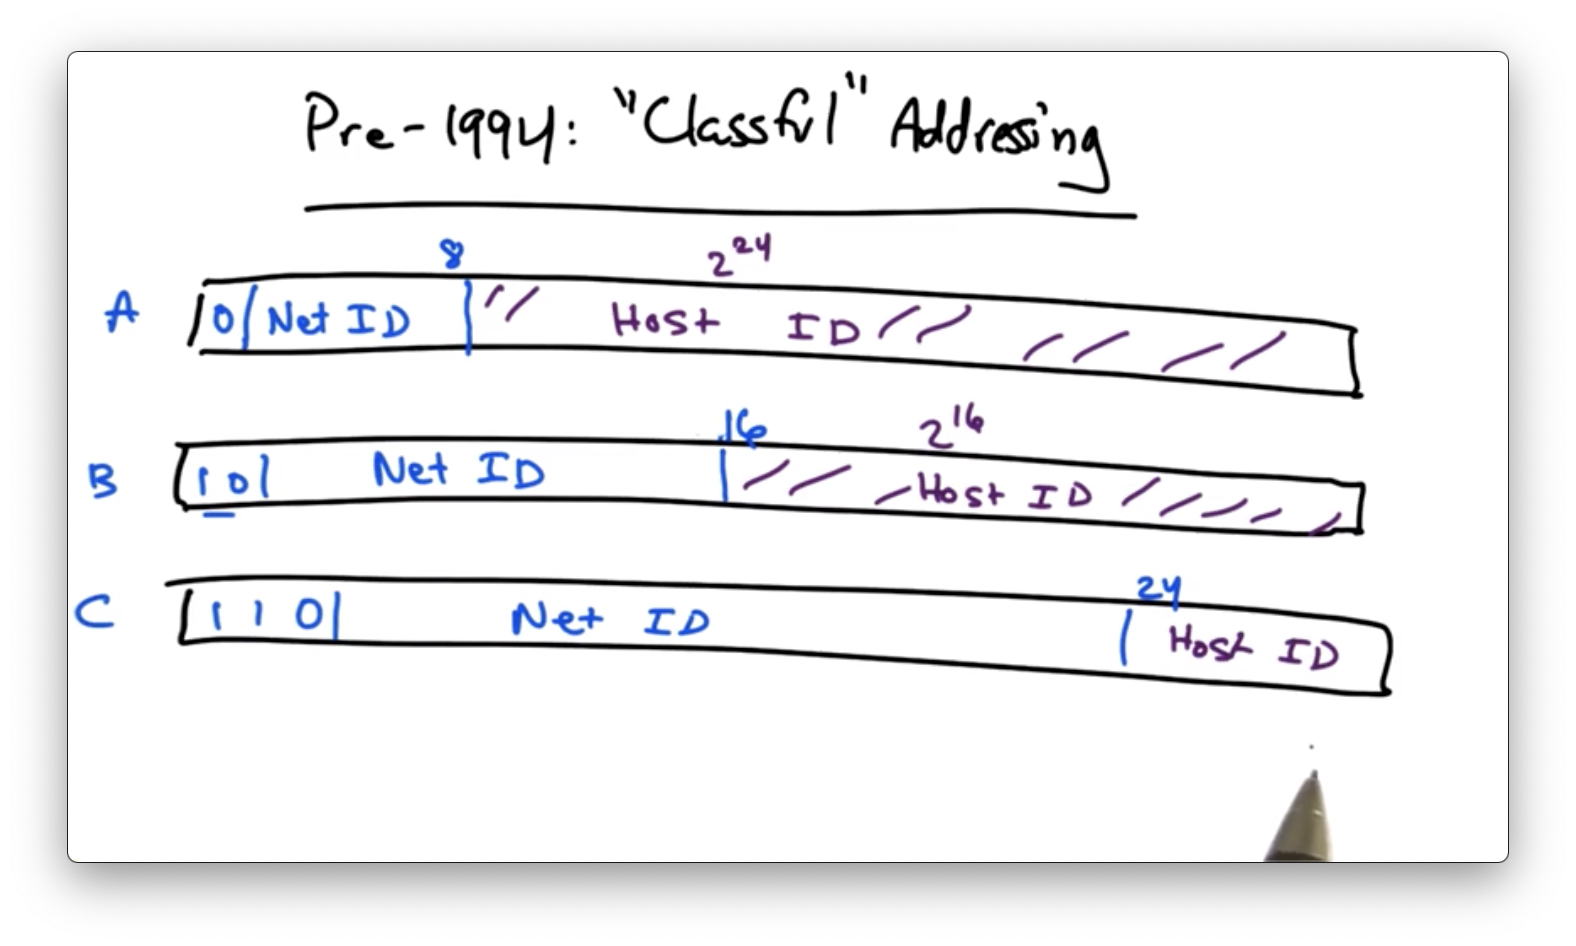 Pre-1994: "Classful" Addressing
8 2^24
A 0 Net ID Host ID
16 2^16
B 10 Net ID Host ID
24
C 110 Net ID Host ID